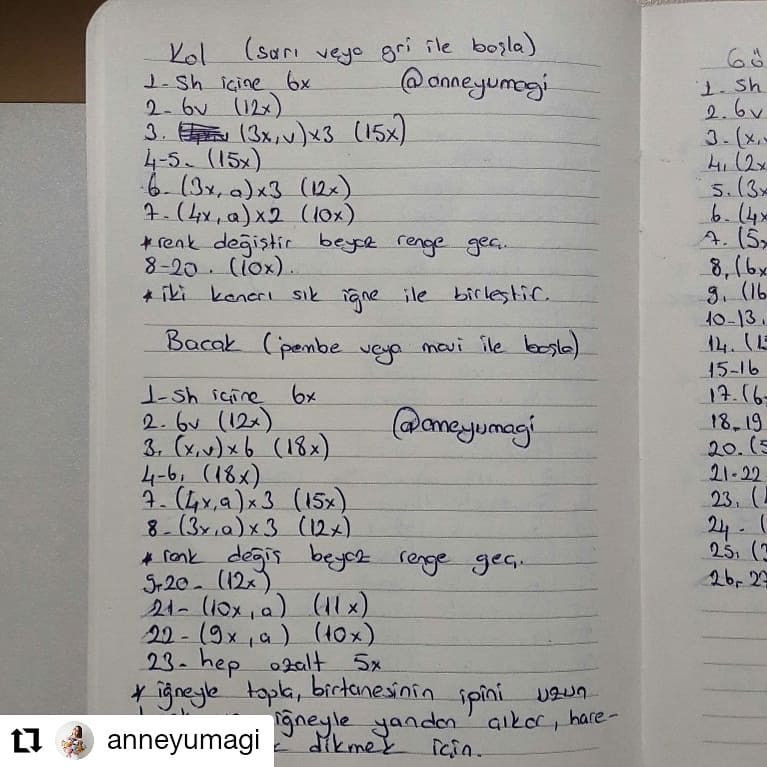 Kol (sarı veya gri ile başla)
1- Sh içine 6x @anneyumagi
2- 6v (12x)
3. (3x,v)x3 (15x)
4-5. (15x)
6- (3x,a)x3 (12x)
7- (4x,a)x2 (10x)
*renk değiştir beyaz renge geç.
8-20. (10x).
* iki kenarı sık iğne ile birleştir.
Bacak (pembe veya mavi ile başla)
1- Sh içine 6x
2. 6v (12x) @anneyumagi
3. (x,v)x6 (18x)
4-6. (18x)
7- (4x,a)x3 (15x)
8- (3x,a)x3 (12x)
* renk değiş beyaz renge geç.
9-20- (12x)
21- (10x,a) (11x)
22- (9x,a) (10x)
23- hep azalt 5x
* iğneyle topla, birtanesinin ipini uzun
iğneyle yandan çıkar, hare-
dikmek için.
Gö
1. Sh
2. 6v
3. (x,
4. (2x
5. (3x
6. (4x
7. (5x
8. (6x
9. (16
10-13.
14. (1
15-16
17. (6
18-19
20. (5
21-22
23. (
24- (
25. (
26-27
anneyumagi